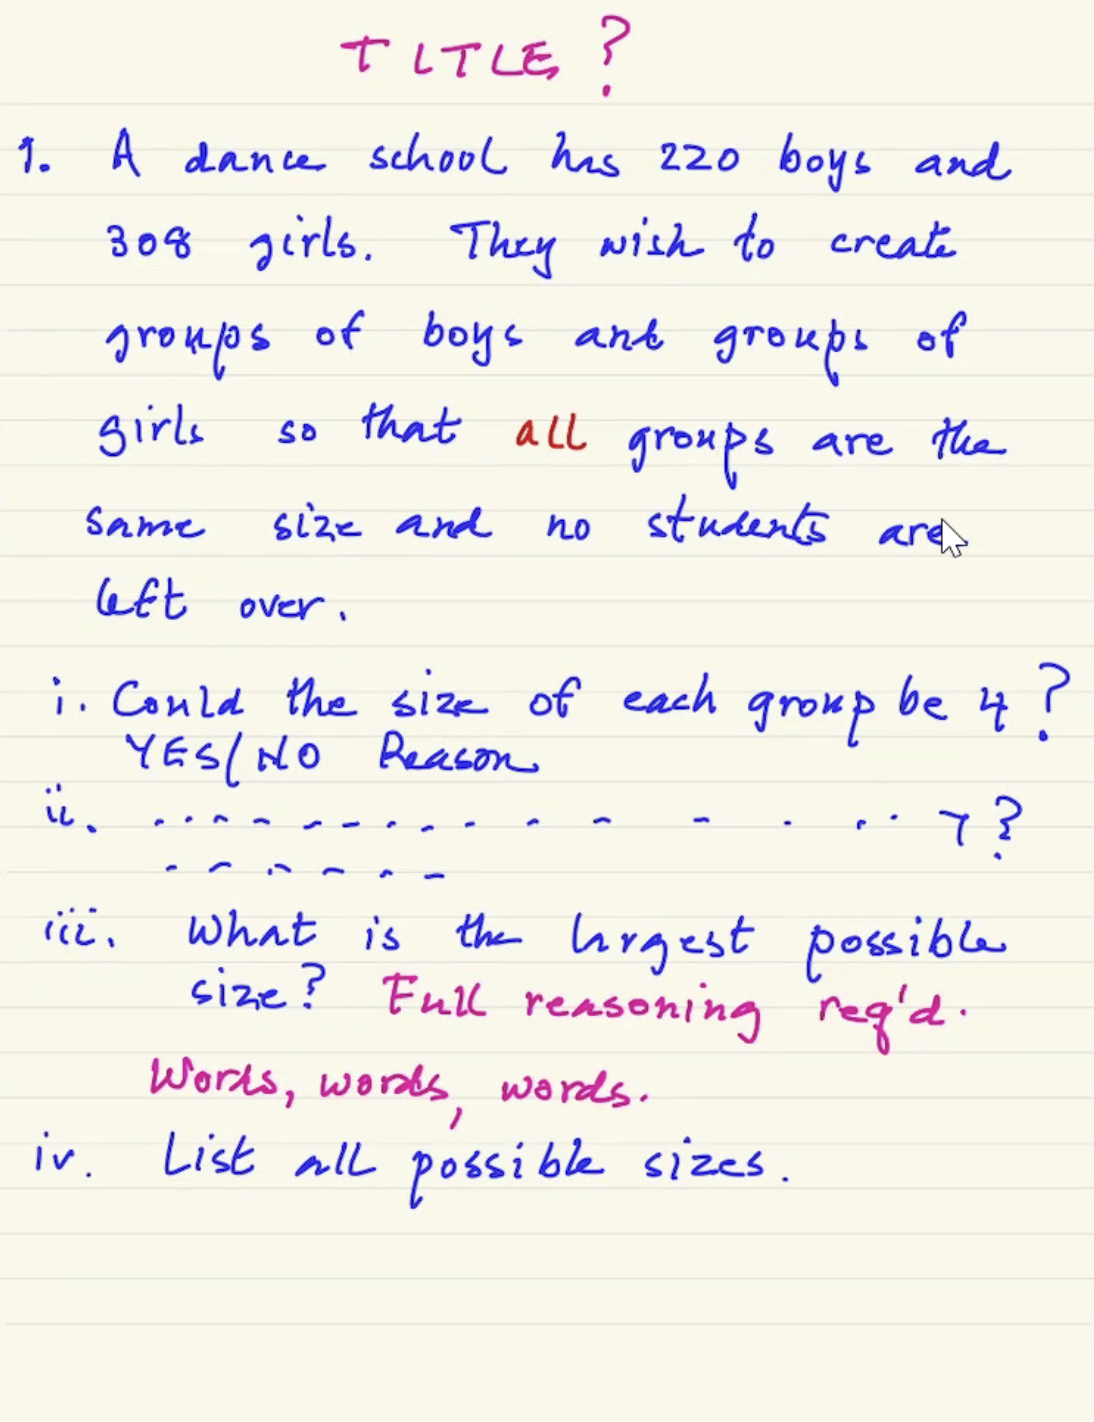 TITLE?
1. A dance school has 220 boys and
308 girls. They wish to create
groups of boys and groups of
girls so that all groups are the
same size and no students are
left over.
i. Could the size of each group be 4?
YES/NO Reason
ii. .............. 7?
......
iii. What is the largest possible
size? Full reasoning req'd.
Words, words, words.
iv. List all possible sizes.